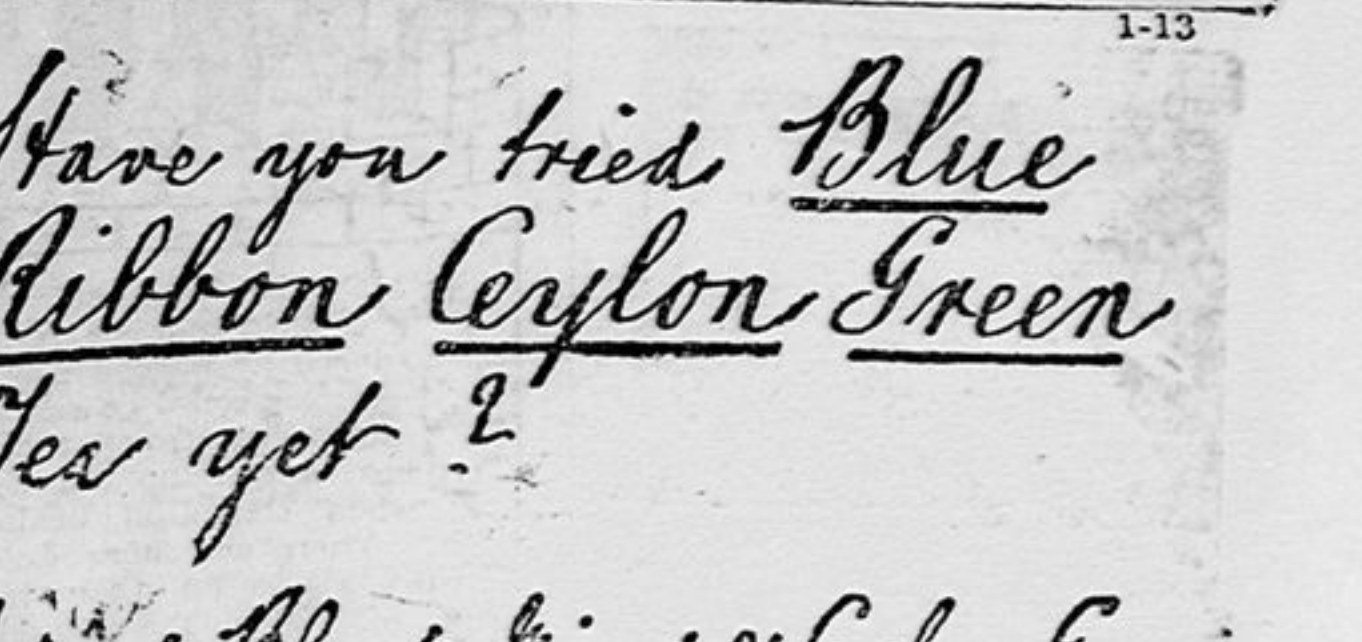 1-13
Have you tried Blue
Ribbon Ceylon Green
Tea yet ?